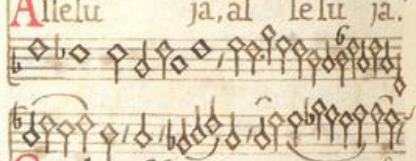 Allelu ja, al lelu ja.
6